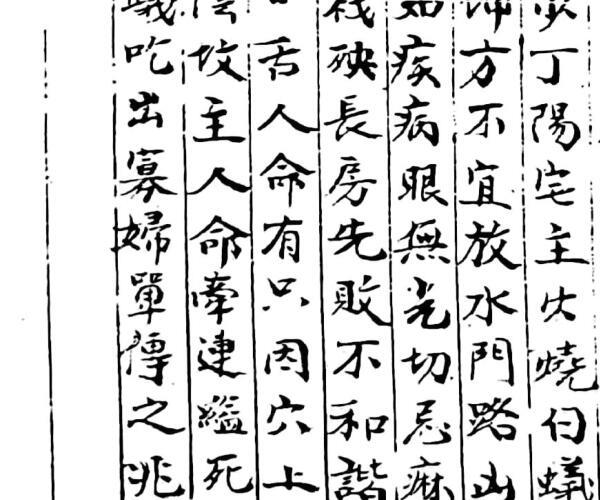 丁陽宅主火燒白蟻
方不宜放水門路山
如疾病眼無光切忌麻
殃長房先敗不和諧
舌人命有只因穴上
坟主人命牽連縊死
吃出寡婦單傳之兆